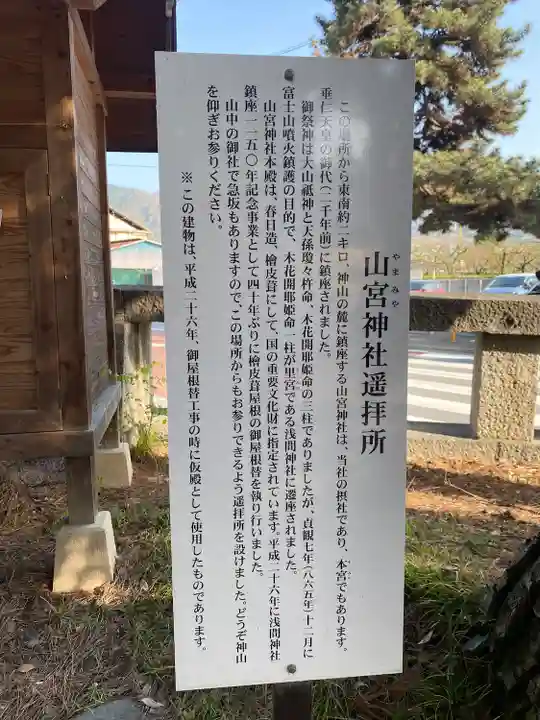 やまみや
山宮神社遥拝所
この場所から東南約二キロ、神山の麓に鎮座する山宮神社は、当社の摂社であり、本宮でもあります。
垂仁天皇の御代(二千年前)に鎮座されました。
御祭神は大山祗神と天孫瓊々杵命、木花開耶姫命の三柱でありましたが、貞観七年(八六五年)十二月に
富士山噴火鎮護の目的で、木花開耶姫命一柱が里宮である浅間神社に遷座されました。
山宮神社本殿は、春日造、檜皮葺にして、国の重要文化財に指定されています。平成二十六年に浅間神社
鎮座一一五〇年記念事業として四十年ぶりに檜皮葺屋根の御屋根替を執り行いました。
山中の御社で急坂もありますので、この場所からもお参りできるよう遥拝所を設けました。どうぞ神山
を仰ぎお参りください。
※この建物は、平成二十六年、御屋根替工事の時に仮殿として使用したものであります。